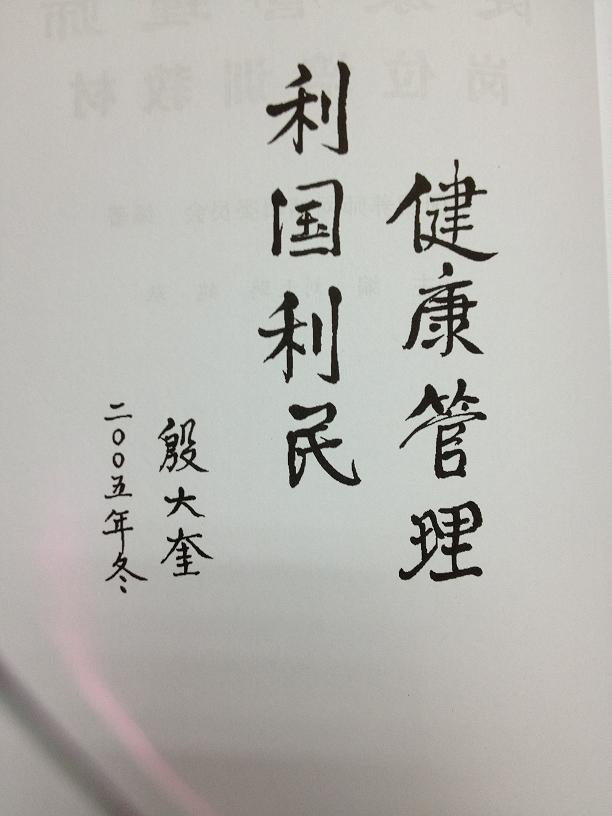 健康管理
利国利民
殷大奎
二〇〇五年冬